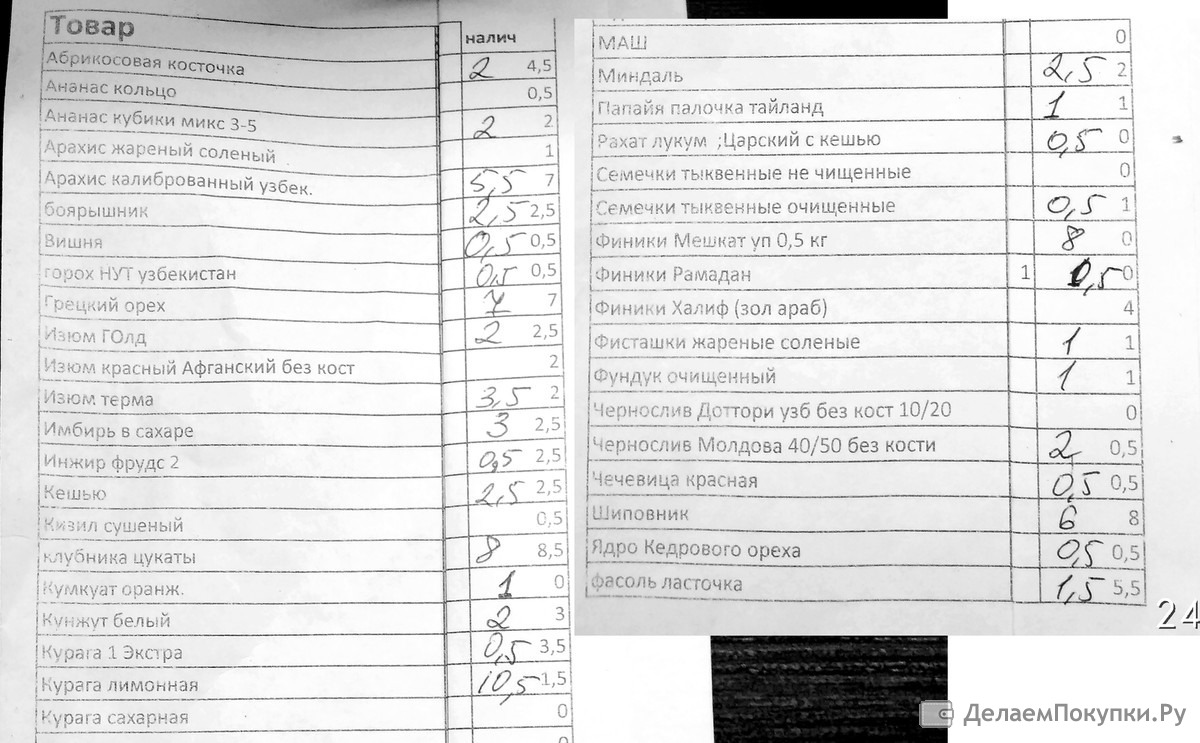 Товар налич
Абрикосовая косточка 2 4,5
Ананас кольцо 0,5
Ананас кубики микс 3-5 2 2
Арахис жареный соленый 1
Арахис калиброванный узбек. 5,5 7
боярышник 2,5 2,5
Вишня 0,5 0,5
горох НУТ узбекистан 0,5 0,5
Грецкий орех 7 7
Изюм ГОлд 2 2,5
Изюм красный Афганский без кост 2
Изюм терма 3,5 2
Имбирь в сахаре 3 2,5
Инжир фрудс 2 0,5 2,5
Кешью 2,5 2,5
Кизил сушеный 0,5
клубника цукаты 8 8,5
Кумкуат оранж. 1 0
Кунжут белый 2 3
Курага 1 Экстра 0,5 3,5
Курага лимонная 10,5 1,5
Курага сахарная 0
МАШ 0
Миндаль 2,5 2
Папайя палочка тайланд 1 1
Рахат лукум ;Царский с кешью 0,5 0
Семечки тыквенные не чищенные 0
Семечки тыквенные очищенные 0,5 1
Финики Мешкат уп 0,5 кг 8 0
Финики Рамадан 1 0,5 0
Финики Халиф (зол араб) 4
Фисташки жареные соленые 1 1
Фундук очищенный 1 1
Чернослив Доттори узб без кост 10/20 0
Чернослив Молдова 40/50 без кости 2 0,5
Чечевица красная 0,5 0,5
Шиповник 6 8
Ядро Кедрового ореха 0,5 0,5
фасоль ласточка 1,5 5,5
24
ДелаемПокупки.Ру